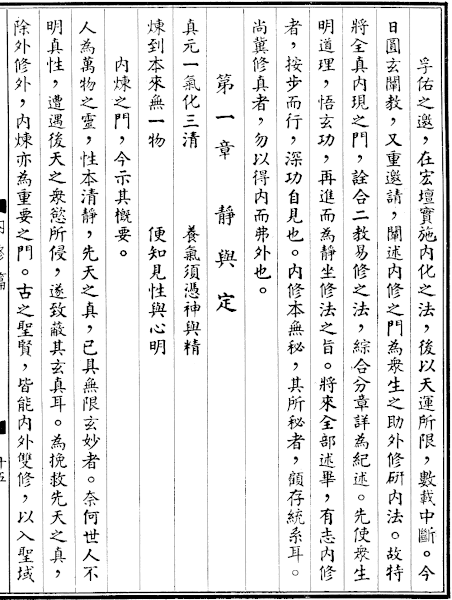 孚佑之邀，在宏壇實施內化之法，後以天運所限，數載中斷。今
日圓玄闡教，又重邀請，闡述內修之門為衆生之助外修研內法。故特
將全真內現之門，詮合二教易修之法，綜合分章詳為紀述。先使衆生
明道理，悟玄功，再進而為靜坐修法之旨。將來全部述畢，有志內修
者，按步而行，深功自見也。內修本無秘，其所秘者，顧存統系耳。
尚冀修真者，勿以得內而弗外也。
第一章　靜與定
真元一氣化三清　養氣須憑神與精
煉到本來無一物　便知見性與心明
內煉之門，今示其概要。
人為萬物之靈，性本清靜，先天之真，已具無限玄妙者。奈何世人不
明真性，遭遇後天之衆慾所侵，遂致蔽其玄真耳。為挽救先天之真，
除外修外，內煉亦為重要之門。古之聖賢，皆能內外雙修，以入聖域
內修篇
十五